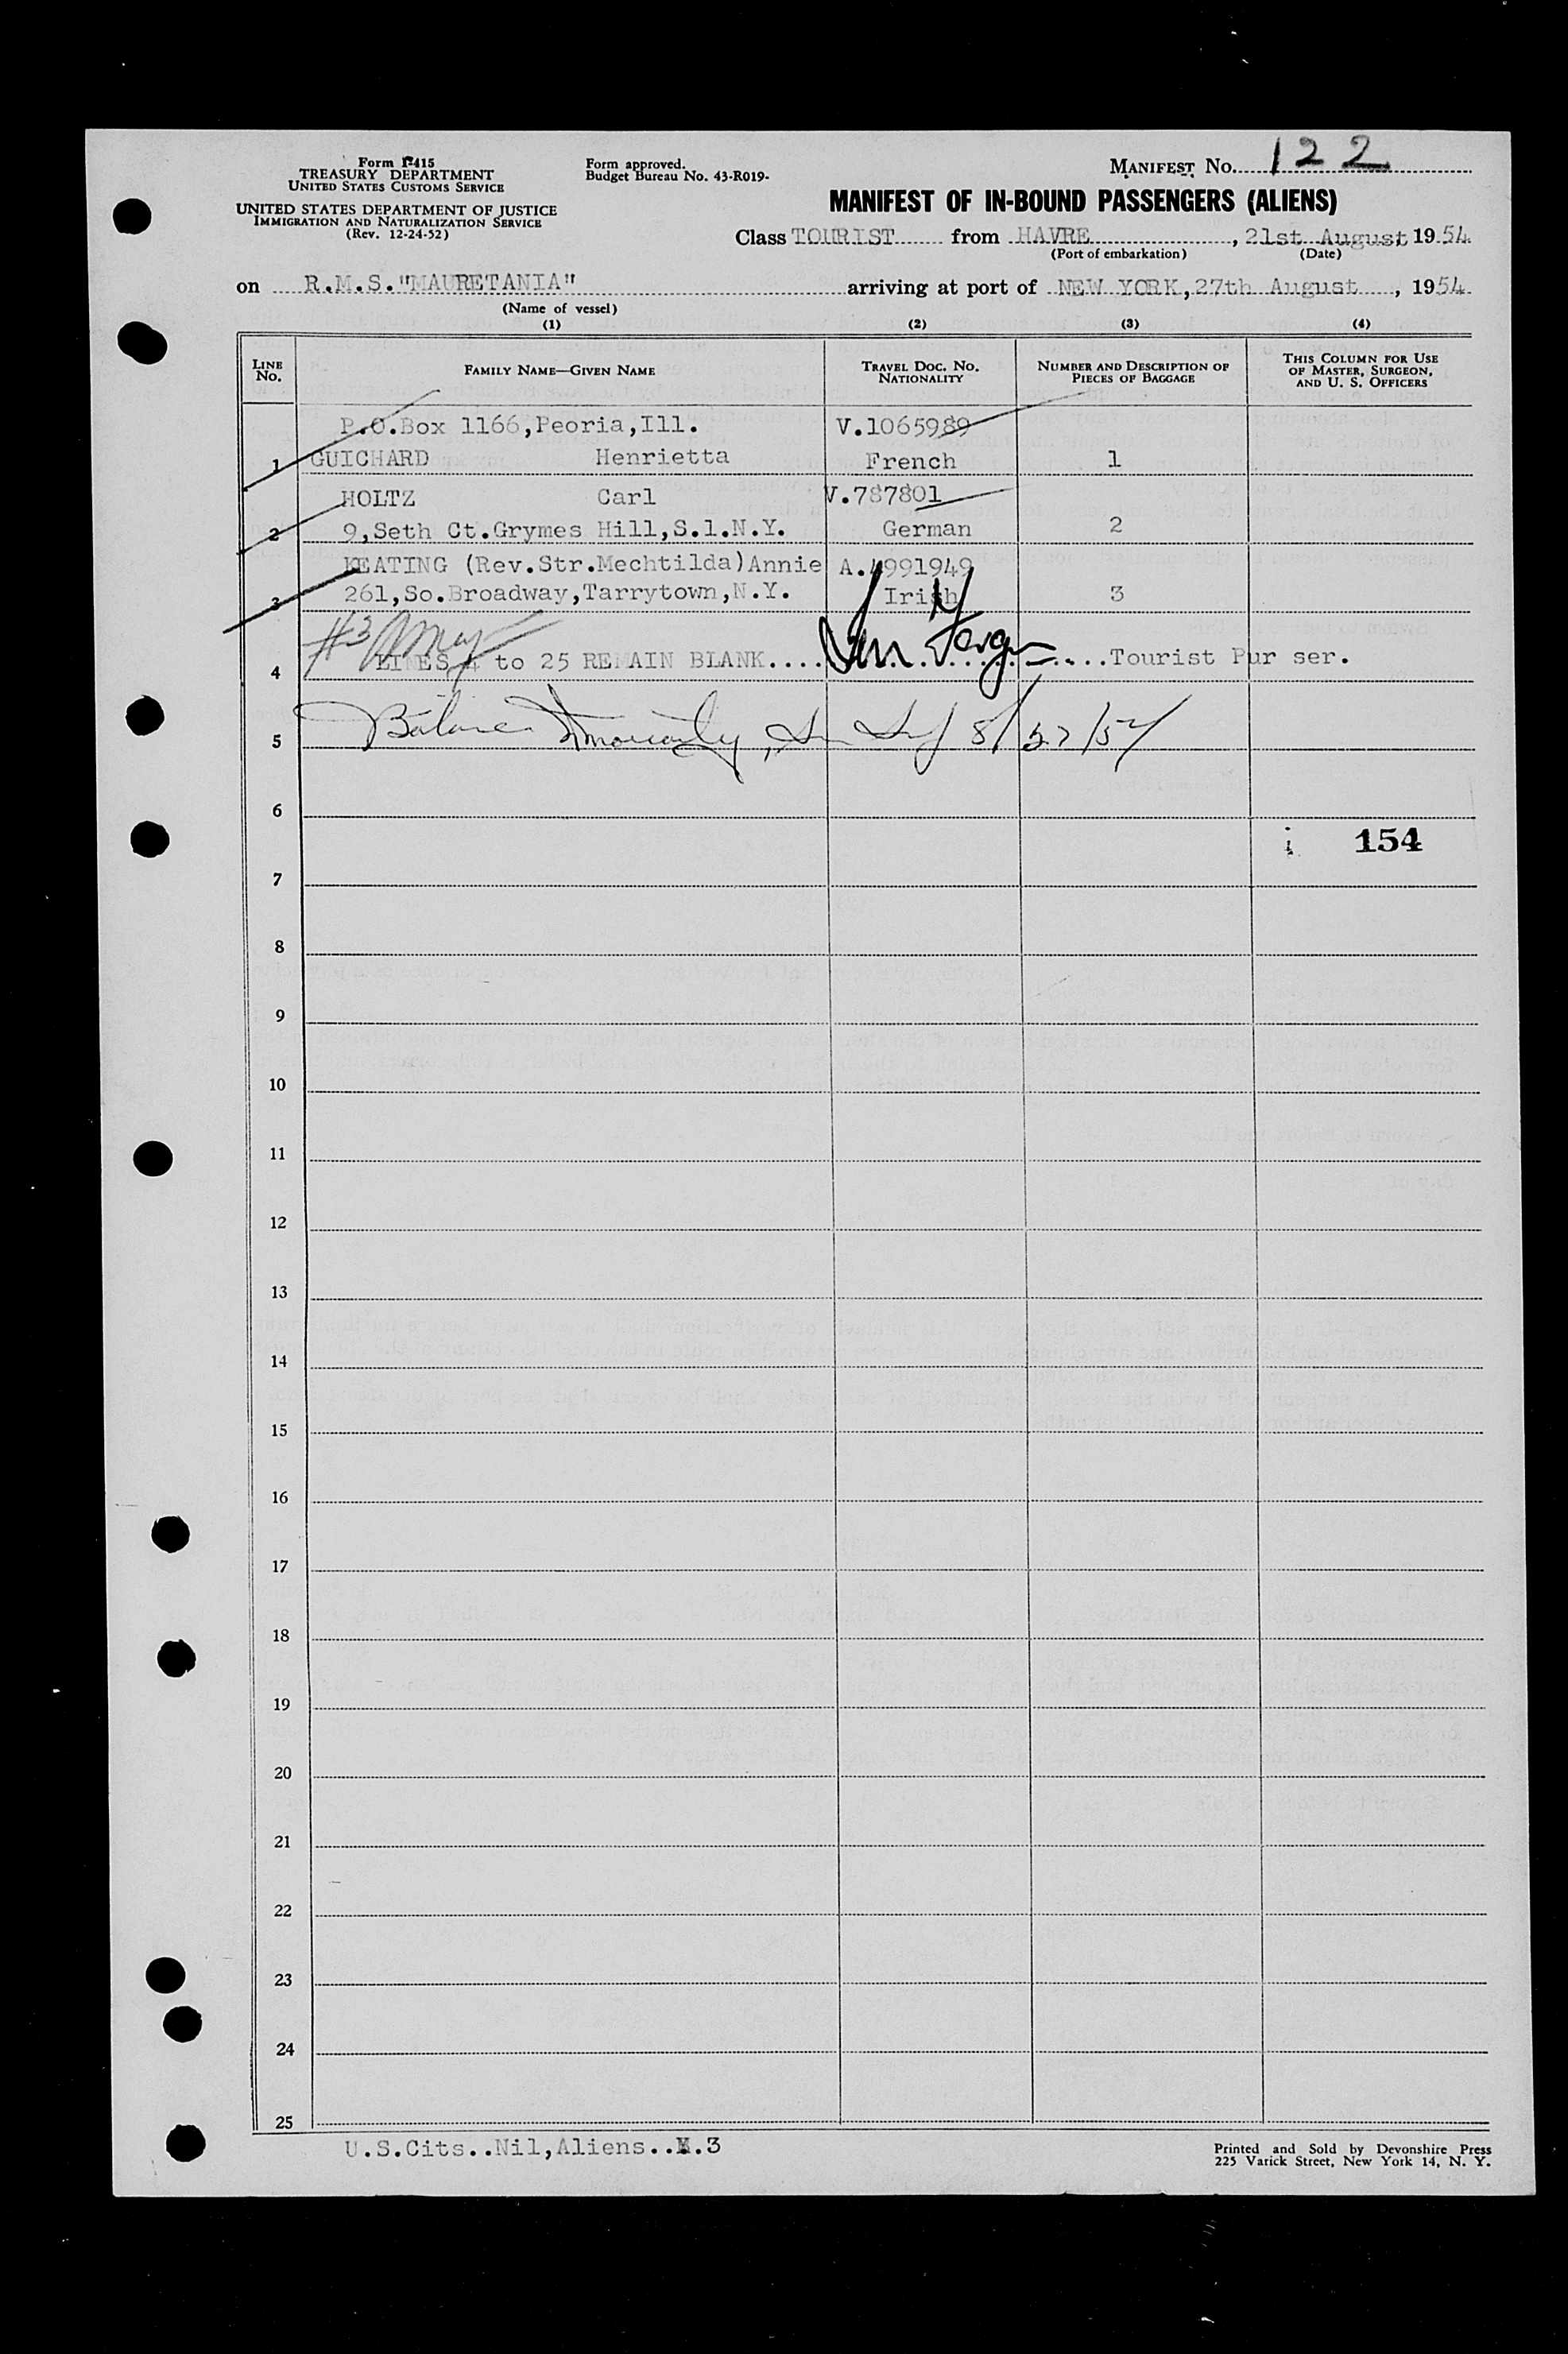 Form I-415
TREASURY DEPARTMENT
UNITED STATES CUSTOMS SERVICE
UNITED STATES DEPARTMENT OF JUSTICE
IMMIGRATION AND NATURALIZATION SERVICE
(Rev. 12-24-52)
Form approved.
Budget Bureau No. 43-R019-
MANIFEST No. 122
MANIFEST OF IN-BOUND PASSENGERS (ALIENS)
Class TOURIST from HAVRE, 21st August, 1954
(Port of embarkation) (Date)
on R.M.S."MAURETANIA" arriving at port of NEW YORK, 27th August, 1954
(Name of vessel)
(1) (2) (3) (4)
LINE No. FAMILY NAME—GIVEN NAME TRAVEL DOC. NO. NATIONALITY NUMBER AND DESCRIPTION OF PIECES OF BAGGAGE THIS COLUMN FOR USE OF MASTER, SURGEON, AND U. S. OFFICERS
P.O.Box 1166,Peoria,Ill. V.1065989
1 GUICHARD Henrietta French 1
HOLTZ Carl V.787801
2 9,Seth Ct.Grymes Hill,S.l.N.Y. German 2
KEATING (Rev.Str.Mechtilda)Annie A.4991949
3 261,So.Broadway,Tarrytown,N.Y. Irish 3
#3
4 LINES 4 to 25 REMAIN BLANK.... ....Tourist Pur ser.
5 8/27/54
6
154
7
8
9
10
11
12
13
14
15
16
17
18
19
20
21
22
23
24
25
U.S.Cits..Nil,Aliens...3
Printed and Sold by Devonshire Press
225 Varick Street, New York 14, N. Y.